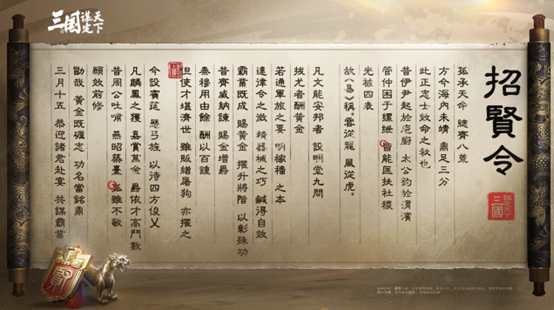 三國謀定天下
招賢令
孤承天命 總齊八荒
方今海內未靖 鼎足三分
此正志士效命之秋也
昔伊尹起於庖廚 太公釣於渭濱
管仲困于縲紲 皆能匡扶社稷
光被四表
故《易》稱。雲從龍 風從虎。
凡文能安邦者 設明堂九問
拔尤者酬黃金
若通軍旅之要 明稼穡之本
達律令之微 精器械之巧 咸得自效
霸業既成 賜黃金 擢升將階 以彰殊功
昔齊威納諫 賜金增爵
秦穆用由餘 酬以百鍾
但使才堪濟世 雖販繒屠狗 亦擢之
今設賓筵 懸弓旌 以待四方俊乂
凡麟鳳之獲 嘉賞萬金 爵依才高門數
昔周公吐哺 燕昭築臺 孤雖不敏
願效前修
勖哉 黃金既礪志 功名當銘鼎
三月十五 恭迎諸君赴宴 共謀霸業